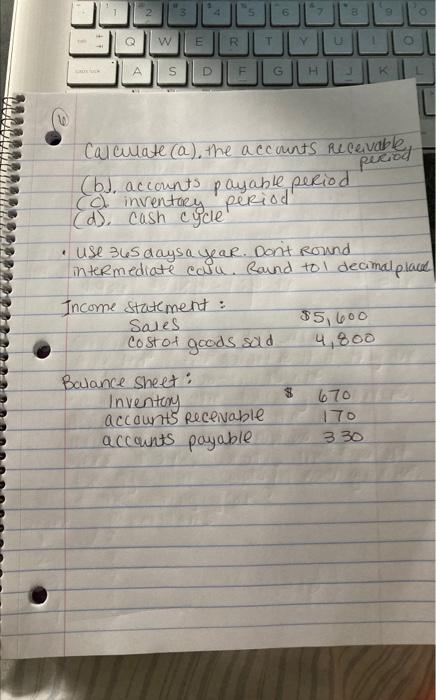 2 3 4 5 6 7 8 9 0
Q W E R T Y U I O
A S D F G H J K L
Calculate (a). the accounts receivable
period
(b). accounts payable period
(c). inventory period
(d). cash cycle
• use 365 days a year. Don't Round
intermediate Round to 1 decimal place
Income Statement :
Sales $5,600
Cost of goods sold 4,800
Balance sheet :
Inventory $ 670
accounts Receivable 170
accounts payable 330